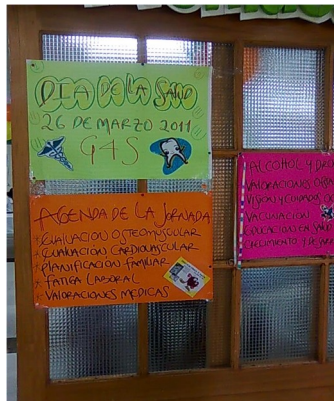 DIA DE LA SALUD
26 DE MARZO 2011
G4S
AGENDA DE LA JORNADA
* EVALUACION OSTEOMUSCULAR
* EVALUACION CARDIOVASCULAR
* PLANIFICACION FAMILIAR
* FATIGA LABORAL
* VALORACIONES MEDICAS
ALCOHOL Y
VALORACIONES
VISION Y CUIDADOS
VACUNACION
EDUCACION EN
CRECIMIENTO Y